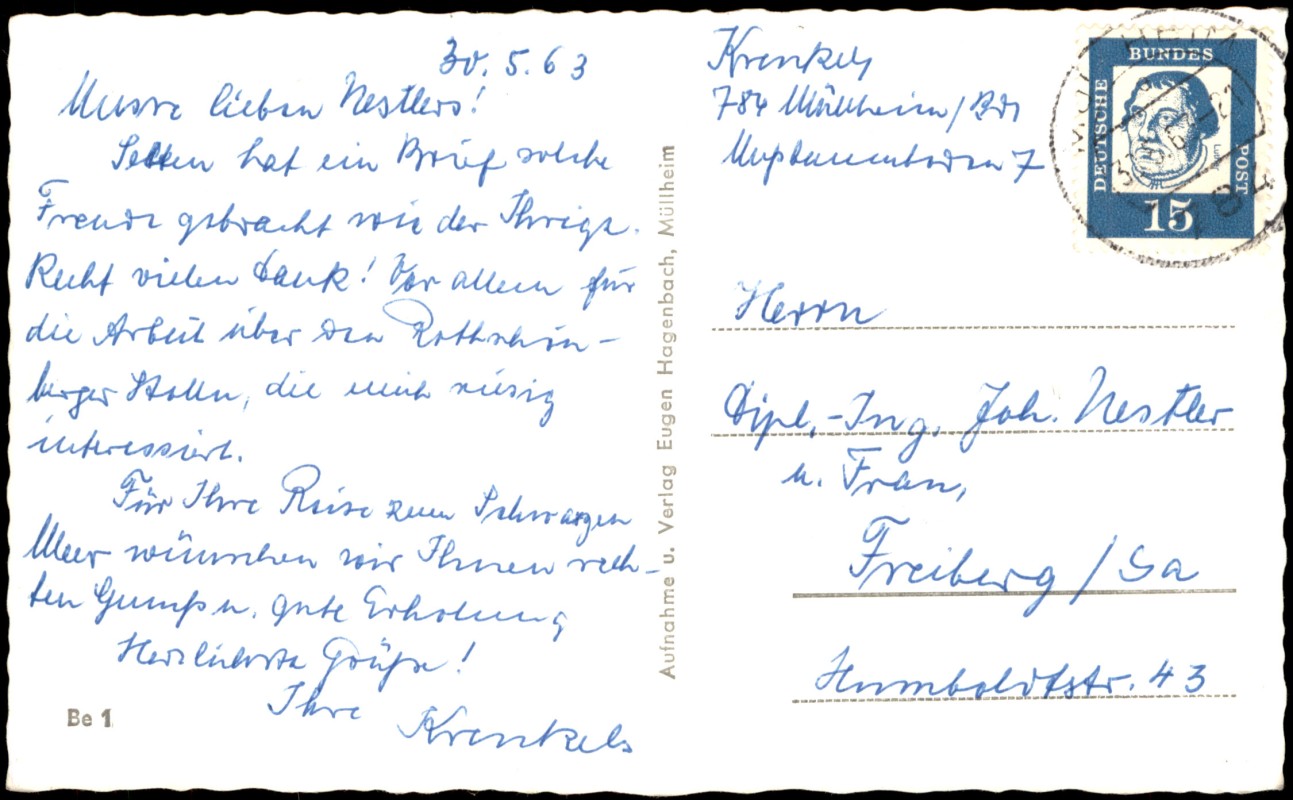 30.5.63
Unsre lieben Nestlers!
Selten hat ein Brief solche
Freude gebracht wie der Ihrige.
Recht vielen Dank! Vor allem für
die Arbeit über den Rothschön-
berger Stolln, die mich riesig
interessiert.
Für Ihre Reise zum Schwarzen
Meer wünschen wir Ihnen rech-
ten Genuß u. gute Erholung
Herzlichste Grüße!
Ihre Krenkels
Be 1
Aufnahme u. Verlag Eugen Hagenbach, Müllheim
Krenkels
784 Müllheim/Bdn
Nußbaumboden 7
DEUTSCHE
BUNDES
POST
15
Herrn
Dipl.-Ing. Joh. Nestler
u. Frau,
Freiberg / Sa
Humboldtstr. 43